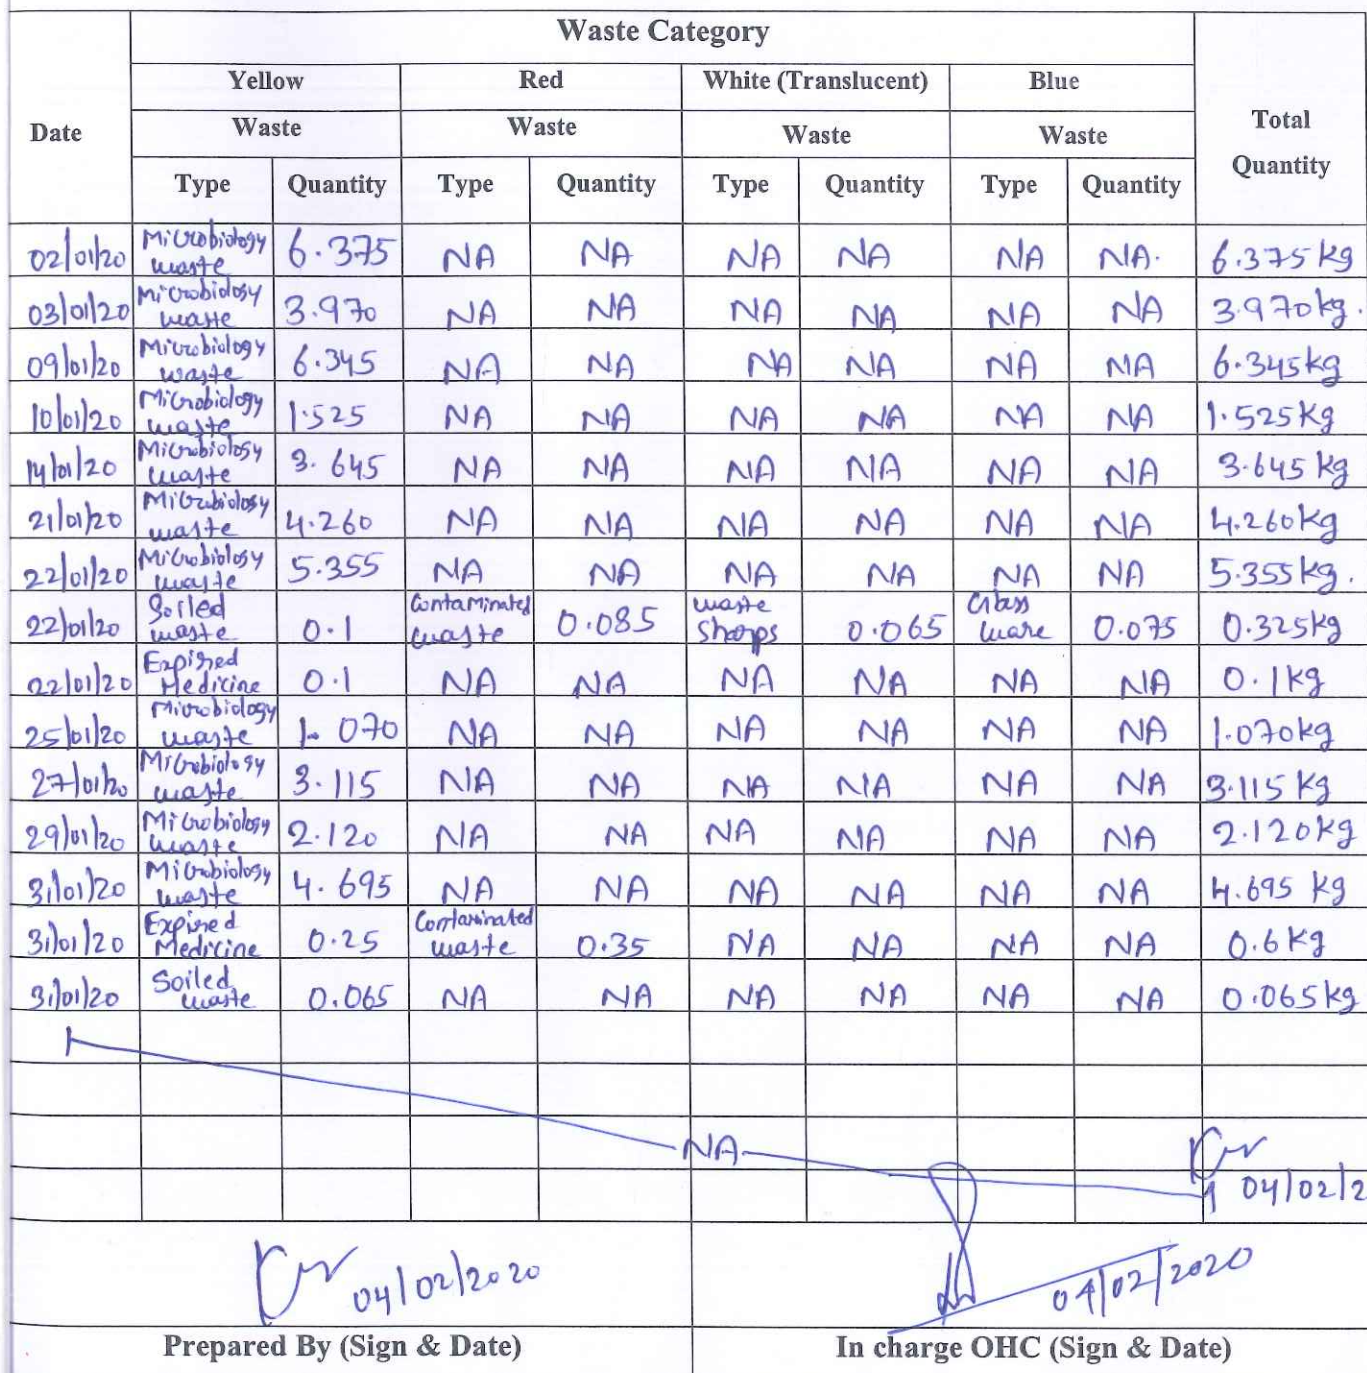 Waste Category
Yellow Red White (Translucent) Blue
Date Waste Waste Waste Waste Total Quantity
Type Quantity Type Quantity Type Quantity Type Quantity
02/01/20 Microbiology waste 6.375 NA NA NA NA NA NA. 6.375 kg
03/01/20 Microbiology waste 3.970 NA NA NA NA NA NA 3.970kg.
09/01/20 Microbiology waste 6.345 NA NA NA NA NA NA 6.345kg
10/01/20 Microbiology waste 1.525 NA NA NA NA NA NA 1.525kg
14/01/20 Microbiology waste 3.645 NA NA NA NA NA NA 3.645 kg
21/01/20 Microbiology waste 4.260 NA NA NA NA NA NA 4.260kg
22/01/20 Microbiology waste 5.355 NA NA NA NA NA NA 5.355kg.
22/01/20 Soiled waste 0.1 Contaminated waste 0.085 waste sharps 0.065 Glass ware 0.075 0.325kg
22/01/20 Expired Medicine 0.1 NA NA NA NA NA NA 0.1kg
25/01/20 Microbiology waste 1.070 NA NA NA NA NA NA 1.070kg
27/01/20 Microbiology waste 3.115 NA NA NA NA NA NA 3.115 kg
29/01/20 Microbiology waste 2.120 NA NA NA NA NA NA 2.120kg
31/01/20 Microbiology waste 4.695 NA NA NA NA NA NA 4.695 kg
31/01/20 Expired Medicine 0.25 Contaminated waste 0.35 NA NA NA NA 0.6kg
31/01/20 Soiled waste 0.065 NA NA NA NA NA NA 0.065kg
NA
04/02/2
04/02/2020 04/02/2020
Prepared By (Sign & Date) In charge OHC (Sign & Date)